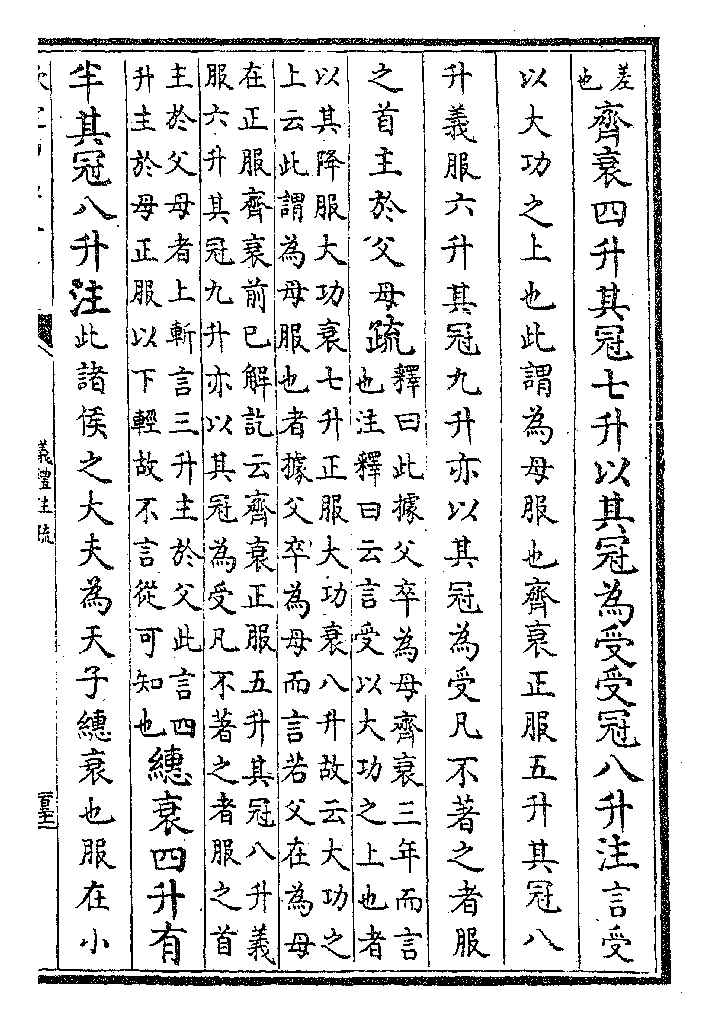 差
也
齊衰四升其冠七升以其冠為受受冠八升注言受
以大功之上也此謂為母服也齊衰正服五升其冠八
升義服六升其冠九升亦以其冠為受凡不著之者服
之首主於父母疏
釋曰此據父卒為母齊衰三年而言
也注釋曰云言受以大功之上也者
以其降服大功衰七升正服大功衰八升故云大功之
上云此謂為母服也者據父卒為母而言若父在為母
在正服齊衰前已解訖云齊衰正服五升其冠八升義
服六升其冠九升亦以其冠為受凡不著之者服之首
主於父母者上斬言三升主於父此言四
升主於母正服以下輕故不言從可知也
繐衰四升有
半其冠八升注此諸侯之大夫為天子繐衰也服在小
儀禮注疏